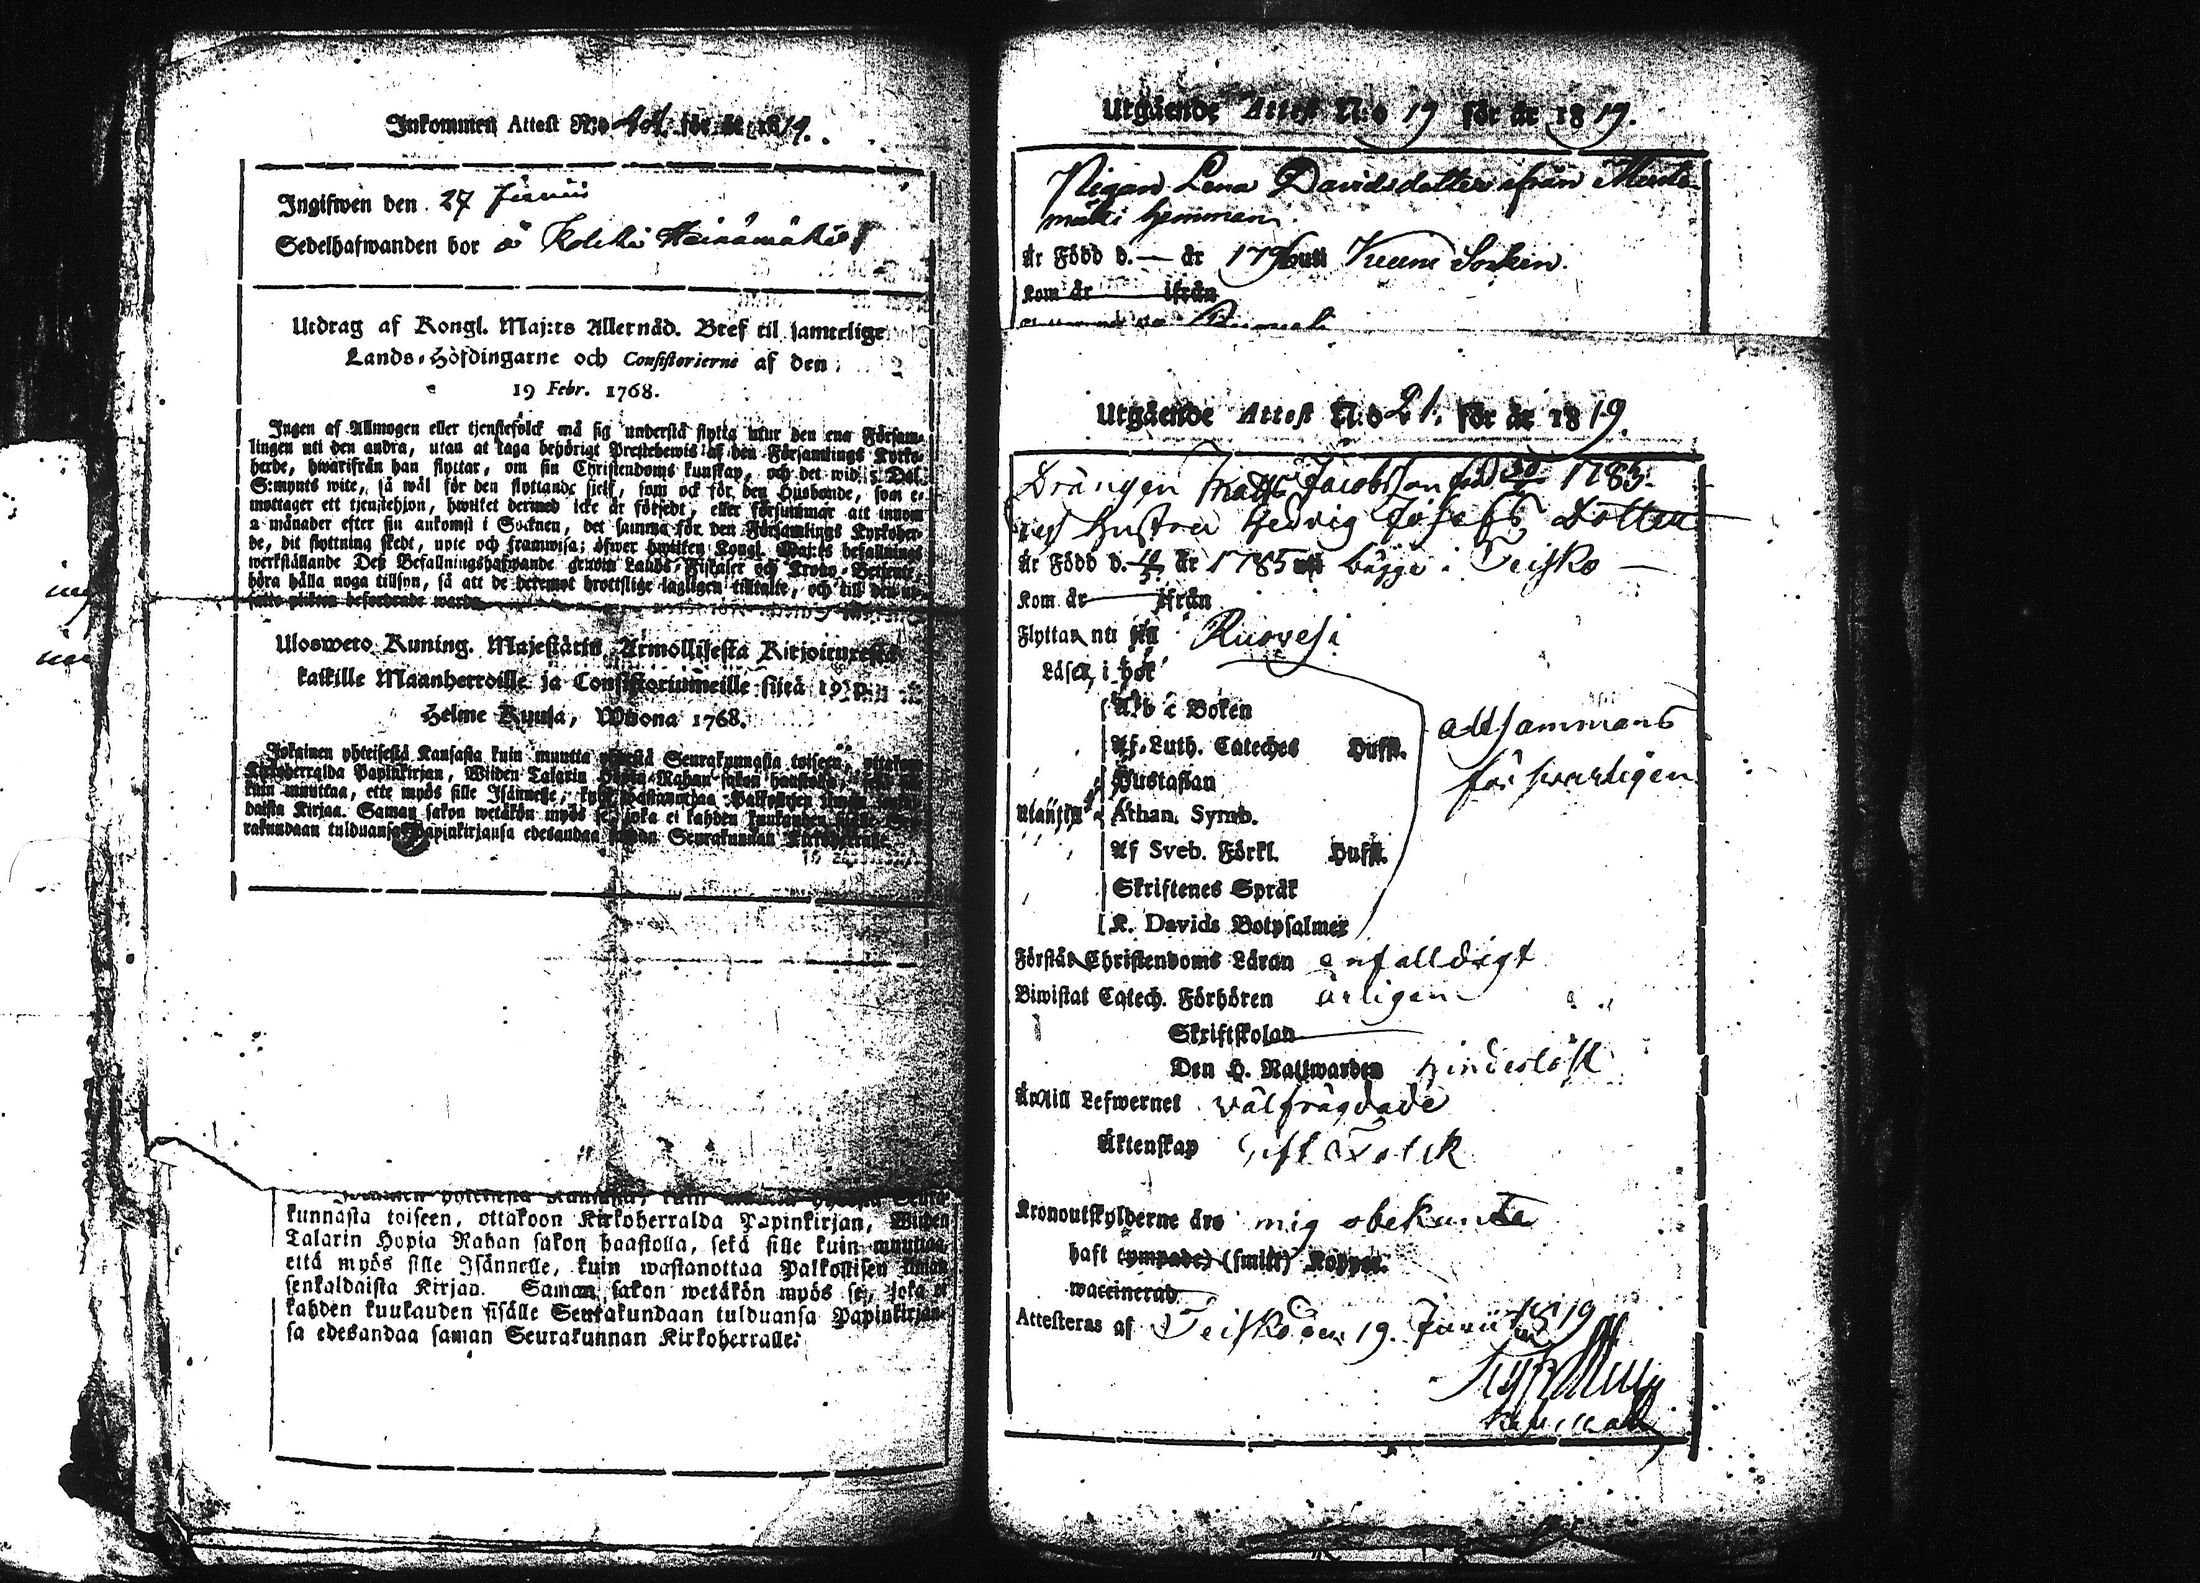 Inkommen Attest N:o för år 1819.
Ingifwen den 27 Junii
Sedelhafwanden bor å Kolcki Heinämäki
Utdrag af Kongl. Maj:ts Allernåd. Bref til samtelige
Lands-Höfdingarne och Consistorierne af den
19 Febr. 1768.
Ingen af Allmogen eller tjenstefolck må sig understå flytta utur den ena Försam-
lingen uti den andra, utan at taga behörigt Prestebewis af den Församlings Kyrko-
herde, hwarifrån han flyttar, om sin Christendoms kunskap, och det wid 5 Dal.
S:mynts wite, så wäl för den flyttande sielf, som ock för den Husbonde, som e-
mottager ett tjenstehjon, hwilket dermed icke är försedt, eller försummar att innom
2 månader efter sin ankomst i Socknen, det samma för den Församlings Kyrkoher-
de, dit flyttning skedt, upte och framwisa; öfwer hwilken Kongl. Maj:ts befallnings
werkställande Deß Befallningshafwande genom Lands-Fiskaler och Crono-Betjente,
böra hålla noga tillsyn, så att de deremot brottslige lagligen tilltalte, och till den ut-
satte plikten befordrade warda.
Uloswero Kuning. Majestätin Armollisesta Kirjoituxesta
kaikille Maanherroille ja Consistoriumeille siitä 19 p:
Helme Kuusa, Wuona 1768.
Jokainen yhteisestä Kansasta kuin muutta yhdestä Seurakunnasta toiseen, ottakoon
Kirkoherralda Papinkirjan, Wiiden Talarin Hopia-Rahan sakon haastolla, sekä sille
kuin muuttaa, ette myös sille Isännelle, kuin wastanottaa Palkollisen ilman senkal-
daista Kirjaa. Saman sakon wetäkön myös se, joka ei kahden kuukauden sisälle Seu-
rakundaan tulduansa Papinkirjansa edesandaa saman Seurakunnan Kirkoherralle.
kunnasta toiseen, ottakoon Kirkoherralda Papinkirjan, Wiiden
Talarin Hopia Rahan sakon haastolla, sekä sille kuin muuttaa,
että myös sille Isännelle, kuin wastanottaa Palkollisen ilman
senkaldaista Kirjaa. Saman sakon wetäkön myös se, joka ei
kahden kuukauden sisälle Seurakundaan tulduansa Papinkirjan-
sa edesandaa saman Seurakunnan Kirkoherralle.
Utgående Attest N:o 19 för år 1819.
Pigan Lena Davidsdotter ifrån
mäki hemman.
Är Född d. — år uti Sockn.
Kom år ifrån
Utgående Attest N:o 21. för år 1819.
Drängen Matts Jacobsson född 1785.
Hustru Hedvig Josefs Dotter
Är Född d. år 1785 uti bägge i Teisko —
Kom år ifrån
Flyttar nu till Ruovesi
Läser i bok
A.b c Boken
Af Luth. Cateches Huffl.
Hustaflan
Utantill Athan. Symb.
Af Sveb. Förkl. Huffl.
Skriftenes Språk
K. Davids Botpsalmer
altsammans
försvarligen
Förstår Christendoms Läran enfalldigt
Biwistat Catech. Förhören årligen
Skriftskolan
Den H. Nattwarden hinderslöst
Är till Lefwernet välfrägdade
Äktenskap Gift Folck
Kronoutskylderne äro mig obekante
haft (ympade) (smitt) Koppor.
waccinerad
Attesteras af Teisko den 19. Junii 1819